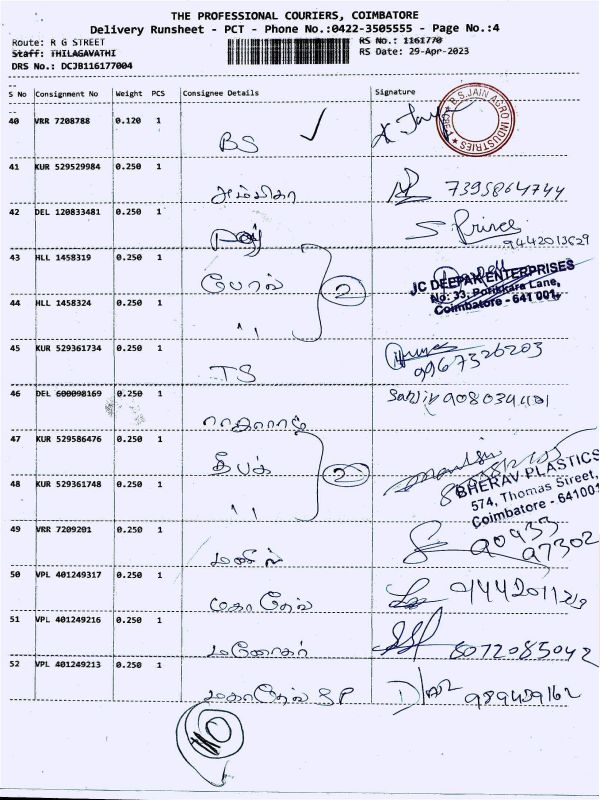 THE PROFESSIONAL COURIERS, COIMBATORE
Delivery Runsheet - PCT - Phone No.:0422-3505555 - Page No.:4
Route: R G STREET
RS No.: 1161770
Staff: THILAGAVATHI
RS Date: 29-Apr-2023
DRS No.: DCJB116177004
S No Consignment No Weight PCS Consignee Details Signature
40 VRR 7208788 0.120 1
BS
B.S.JAIN AGRO INDUSTRIES
41 KUR 529529984 0.250 1
அம்பிகா 7395864744
42 DEL 120833481 0.250 1
S. Prince
9442013629
43 HLL 1458319 0.250 1
போல் 2
JC DEEPAK ENTERPRISES
No: 33, Porikkara Lane,
Coimbatore - 641 001.
44 HLL 1458324 0.250 1
" 
45 KUR 529361734 0.250 1
TS 9967326203
46 DEL 600098169 0.250 1
47 KUR 529586476 0.250 1
தீபக் 2
BHERAV PLASTICS
574, Thomas Street,
Coimbatore - 641001
48 KUR 529361748 0.250 1
"
49 VRR 7209201 0.250 1
90933
97302
50 VPL 401249317 0.250 1
மகாதேவ்
51 VPL 401249216 0.250 1
மனோகர் 8072085042
52 VPL 401249213 0.250 1
மகாதேவ் SP
10